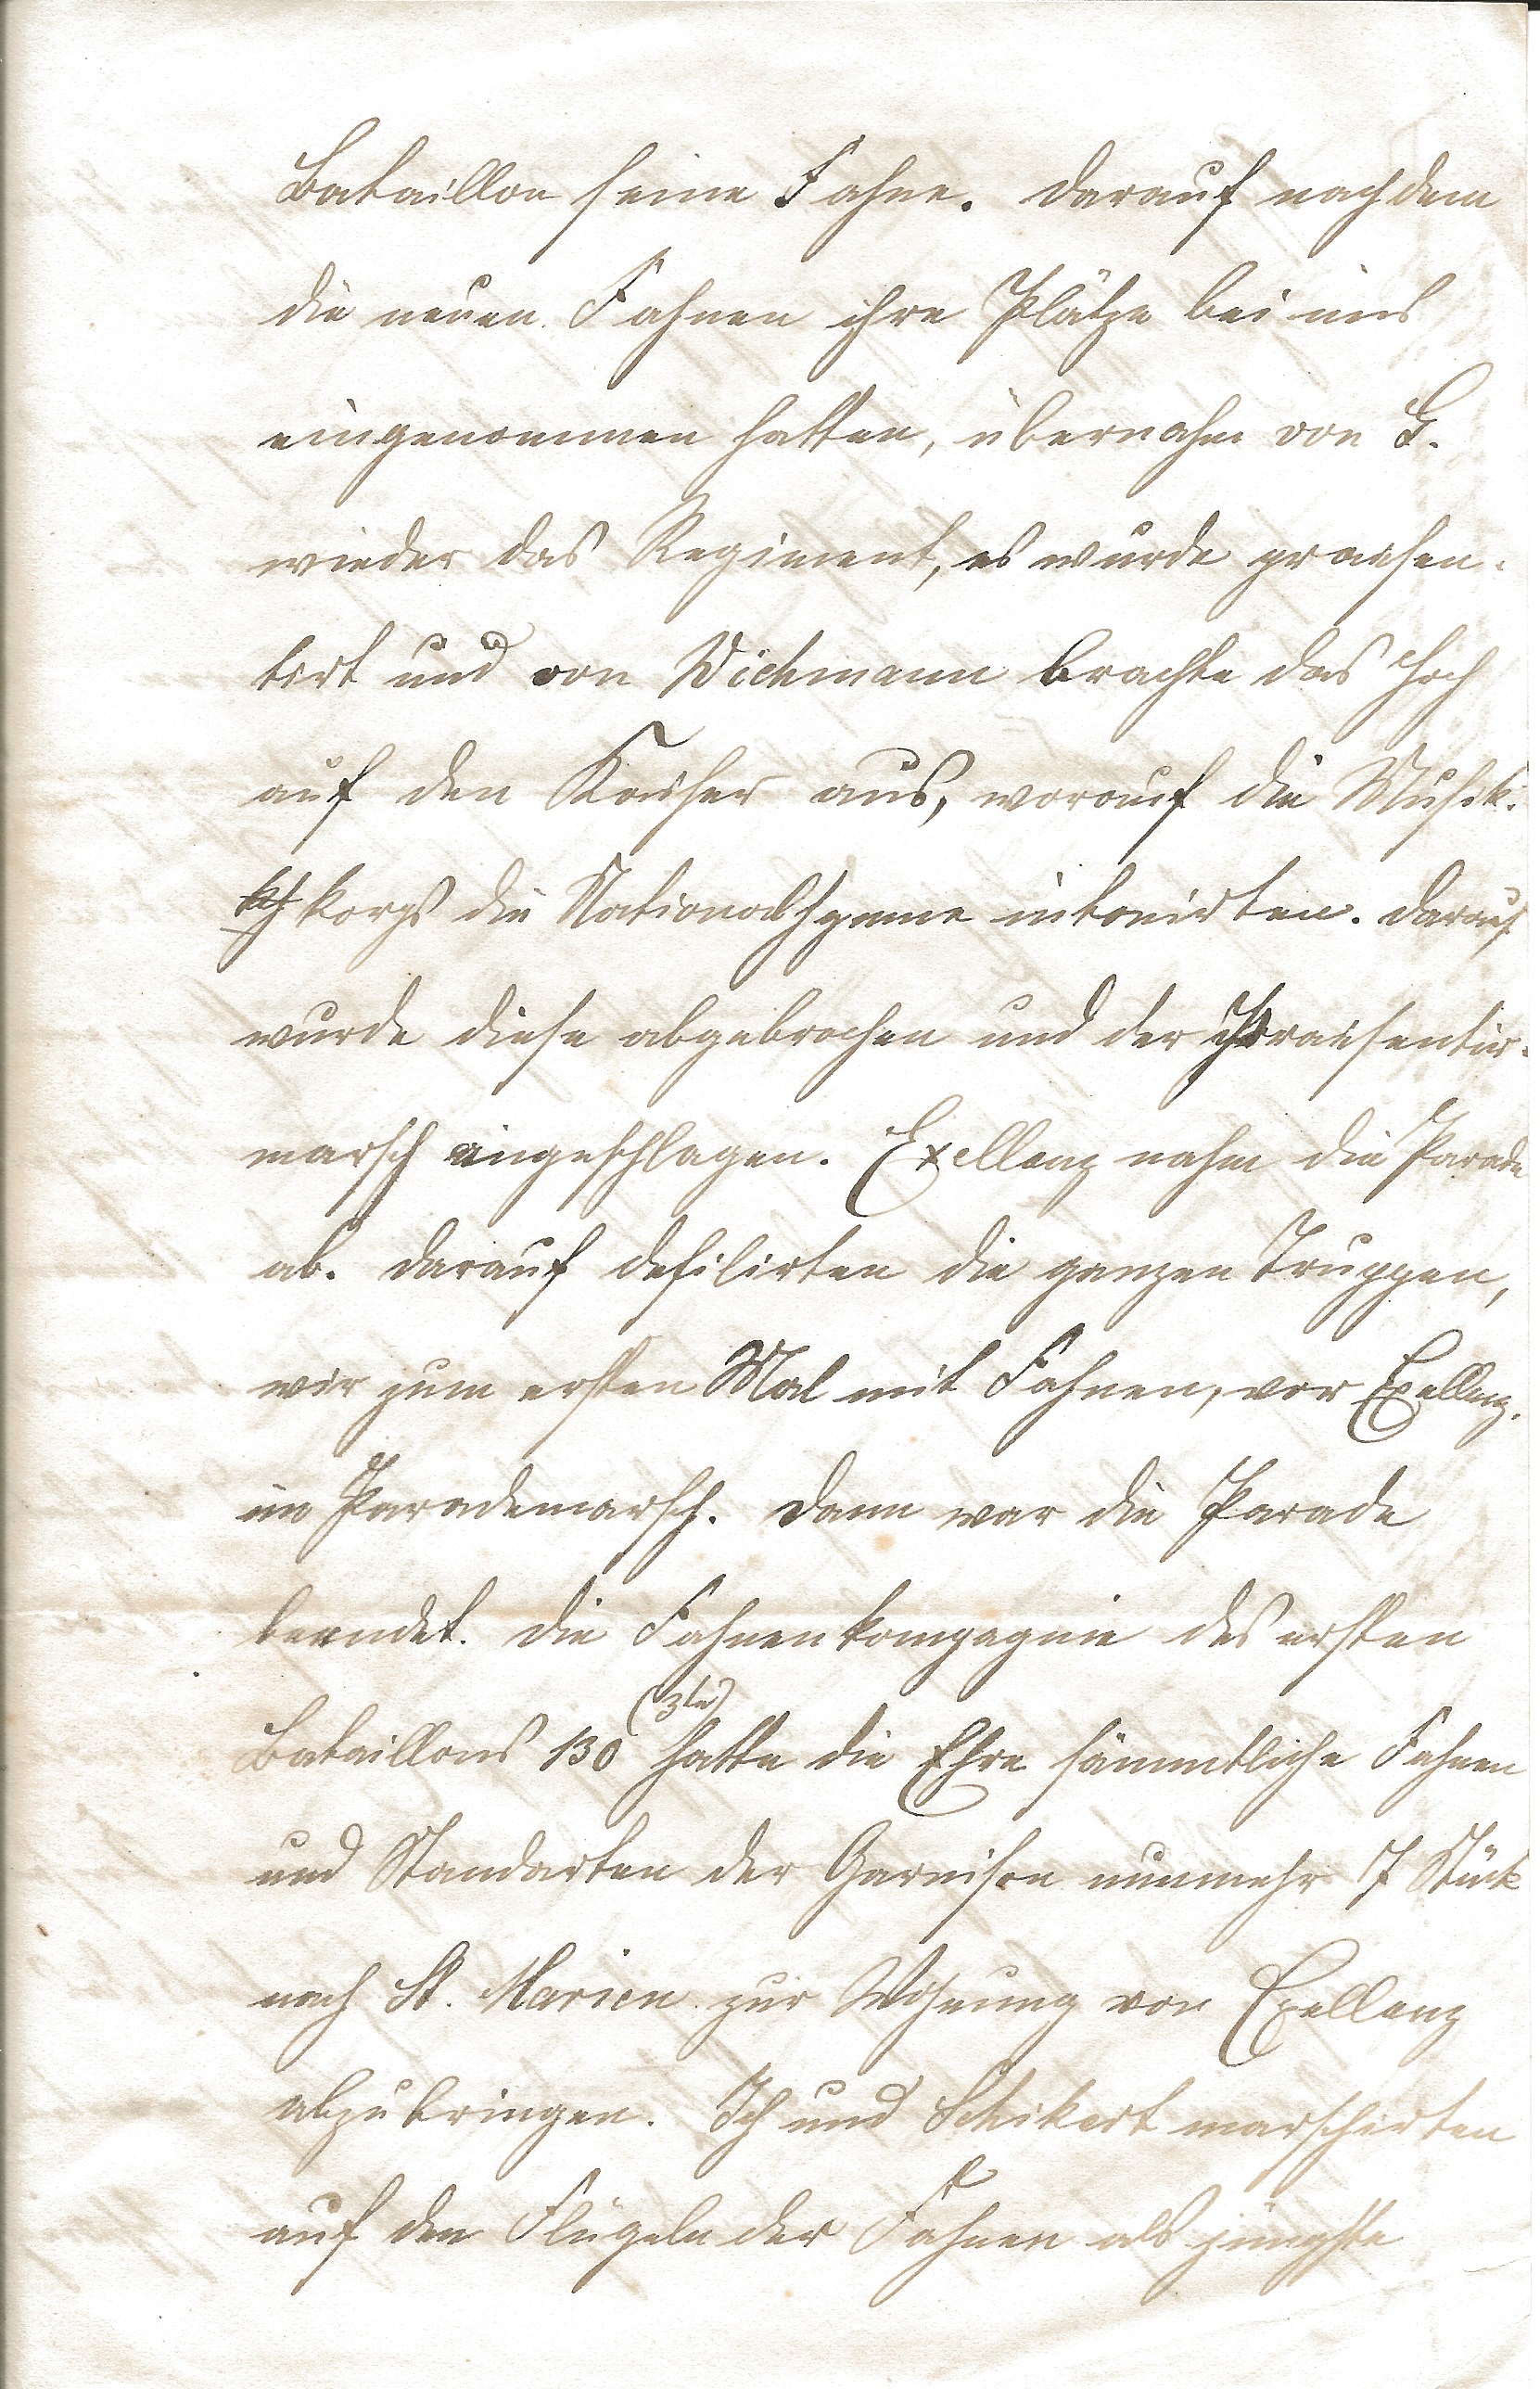 Bataillon seine Fahne. Darauf nachdem
die neuen Fahnen ihre Plätze bei uns
eingenommen hatten, übernahm von G.
wieder das Regiment, es wurde praesen-
tirt und von Wichmann brachte das Hoch
auf den Kaiser aus, worauf die Musik-
korps die Nationalhymne intonirten. Darauf
wurde diese abgebrochen und der Praesentir-
marsch eingeschlagen. Exellenz nahm die Parade
ab. Darauf defilirten die ganzen Truppen,
wir zum ersten Mal mit Fahnen, vor Exellenz.
im Parademarsch. Dann war die Parade
beendet. Die Fahnenkompagnie des ersten
(3te)
Bataillons 130 hatte die Ehre sämmtliche Fahnen
und Standarten der Garnison nunmehr 17 Stück
nach St. Marien zur Wohnung von Exellenz
abzubringen. Ich und Schikert marschirten
auf den Flügeln der Fahnen als jüngste